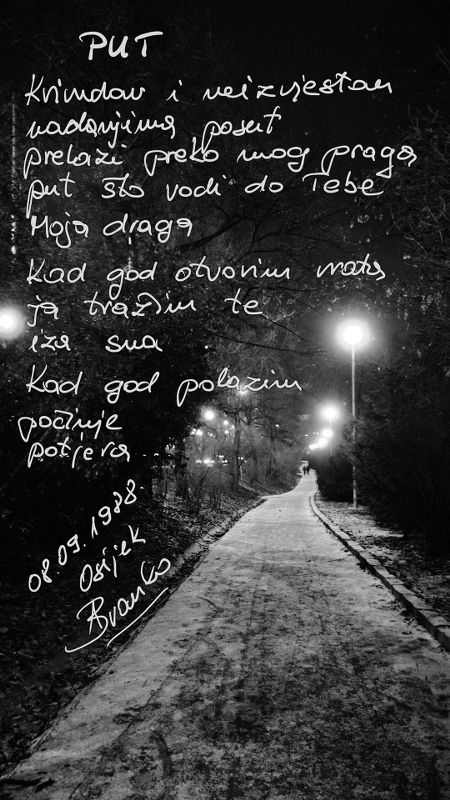 PUT
Krivudav i neizvjestan
nadanjima posut
prelazi preko mog praga
put što vodi do Tebe
Moja draga
Kad god otvorim vrata
ja tražim te
iza sna
Kad god polazim
počinje
potjera...
08.09.1988.
Osijek
Branko